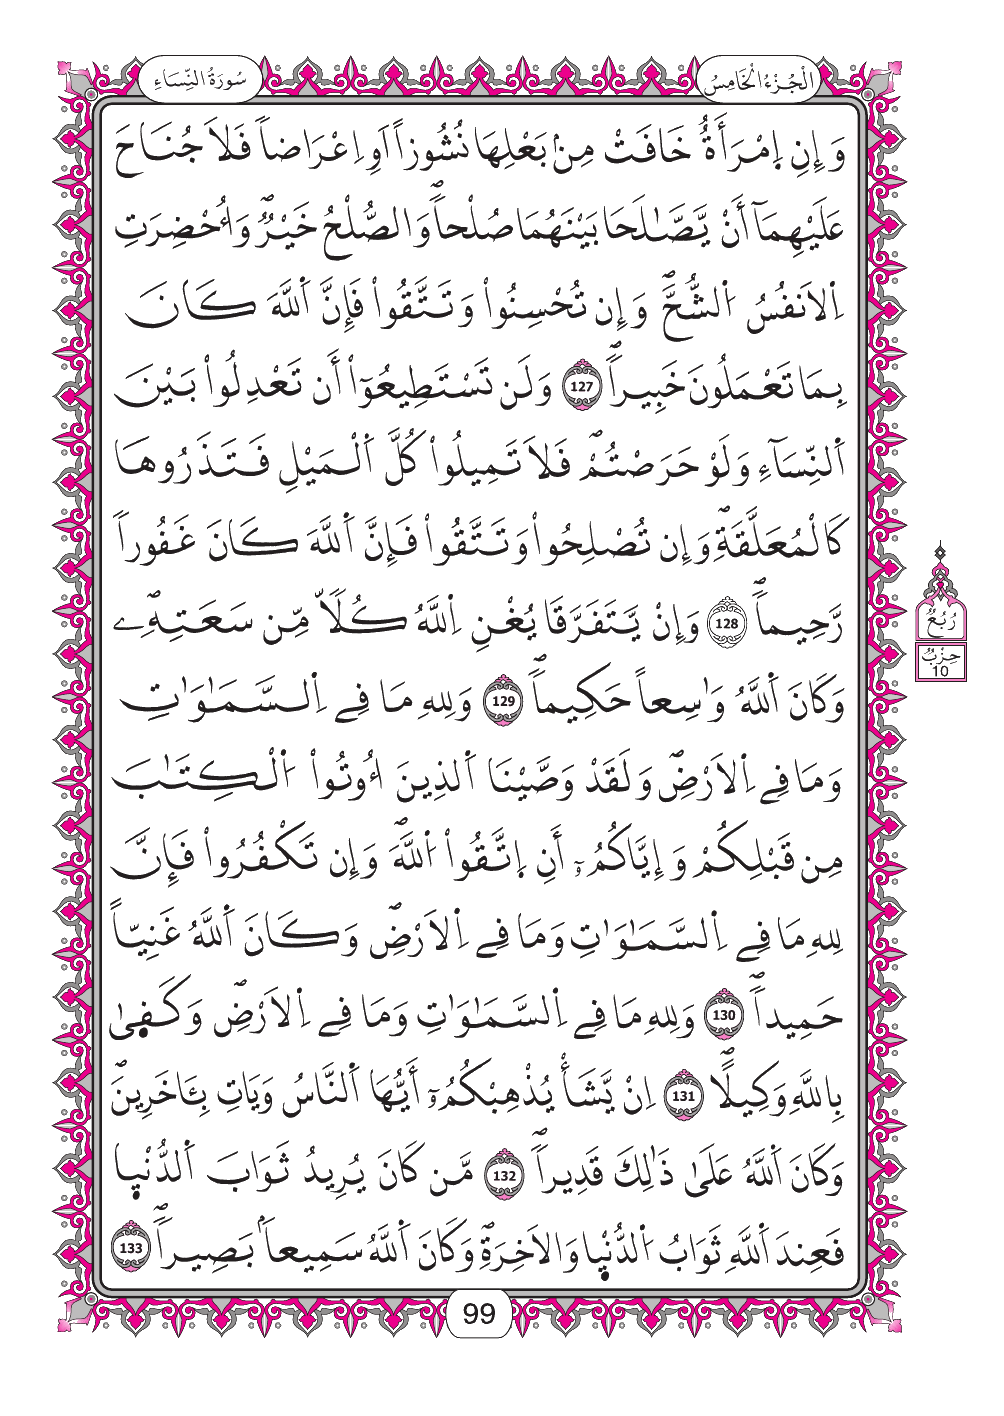 سُورَةُ النِّسَاءِ
الْجُزْءُ الْخَامِسُ
وَإِنِ اِ۪مْرَأَةٌ خَافَتْ مِنۢ بَعْلِهَا نُشُوزاً اَوِ اِعْرَاضاً فَلَا جُنَاحَ
عَلَيْهِمَآ أَنْ يَّصَّٰلَحَا بَيْنَهُمَا صُلْحاًۖ وَالصُّلْحُ خَيْرٌۖ وَأُحْضِرَتِ
اِ۬لَانفُسُ اُ۬لشُّحَّۖ وَإِن تُحْسِنُواْ وَتَتَّقُواْ فَإِنَّ اَ۬للَّهَ كَانَ
بِمَا تَعْمَلُونَ خَبِيراًۖ 127 وَلَن تَسْتَطِيعُوٓاْ أَن تَعْدِلُواْ بَيْنَ
اَ۬لنِّسَآءِ وَلَوْ حَرَصْتُمْۖ فَلَا تَمِيلُواْ كُلَّ اَ۬لْمَيْلِ فَتَذَرُوهَا
كَالْمُعَلَّقَةِۖ وَإِن تُصْلِحُواْ وَتَتَّقُواْ فَإِنَّ اَ۬للَّهَ كَانَ غَفُوراً
رَّحِيماًۖ 128 وَإِنْ يَّتَفَرَّقَا يُغْنِ اِ۬للَّهُ كُلّاً مِّن سَعَتِهِۦۖ
وَكَانَ اَ۬للَّهُ وَٰسِعاً حَكِيماًۖ 129 وَلِلهِ مَا فِے اِ۬لسَّمَٰوَٰتِ
وَمَا فِے اِ۬لَارْضِۖ وَلَقَدْ وَصَّيْنَا اَ۬لذِينَ أُوتُواْ اُ۬لْكِتَٰبَ
مِن قَبْلِكُمْ وَإِيَّاكُمُۥٓ أَنِ اِ۪تَّقُواْ اُ۬للَّهَۖ وَإِن تَكْفُرُواْ فَإِنَّ
لِلهِ مَا فِے اِ۬لسَّمَٰوَٰتِ وَمَا فِے اِ۬لَارْضِۖ وَكَانَ اَ۬للَّهُ غَنِيّاً
حَمِيداًۖ 130 وَلِلهِ مَا فِے اِ۬لسَّمَٰوَٰتِ وَمَا فِے اِ۬لَارْضِۖ وَكَف۪ىٰ
بِاللَّهِ وَكِيلاًۖ 131 اِنْ يَّشَأْ يُذْهِبْكُمُۥٓ أَيُّهَا اَ۬لنَّاسُ وَيَاتِ بِـَٔاخَرِينَۖ
وَكَانَ اَ۬للَّهُ عَلَىٰ ذَٰلِكَ قَدِيراًۖ 132 مَّن كَانَ يُرِيدُ ثَوَابَ اَ۬لدُّنْي۪ا
فَعِندَ اَ۬للَّهِ ثَوَابُ اُ۬لدُّنْي۪ا وَالَاخِرَةِۖ وَكَانَ اَ۬للَّهُ سَمِيعاَۢ بَصِيراًۖ 133
رُبُعُ
حِزْبُ
10
99